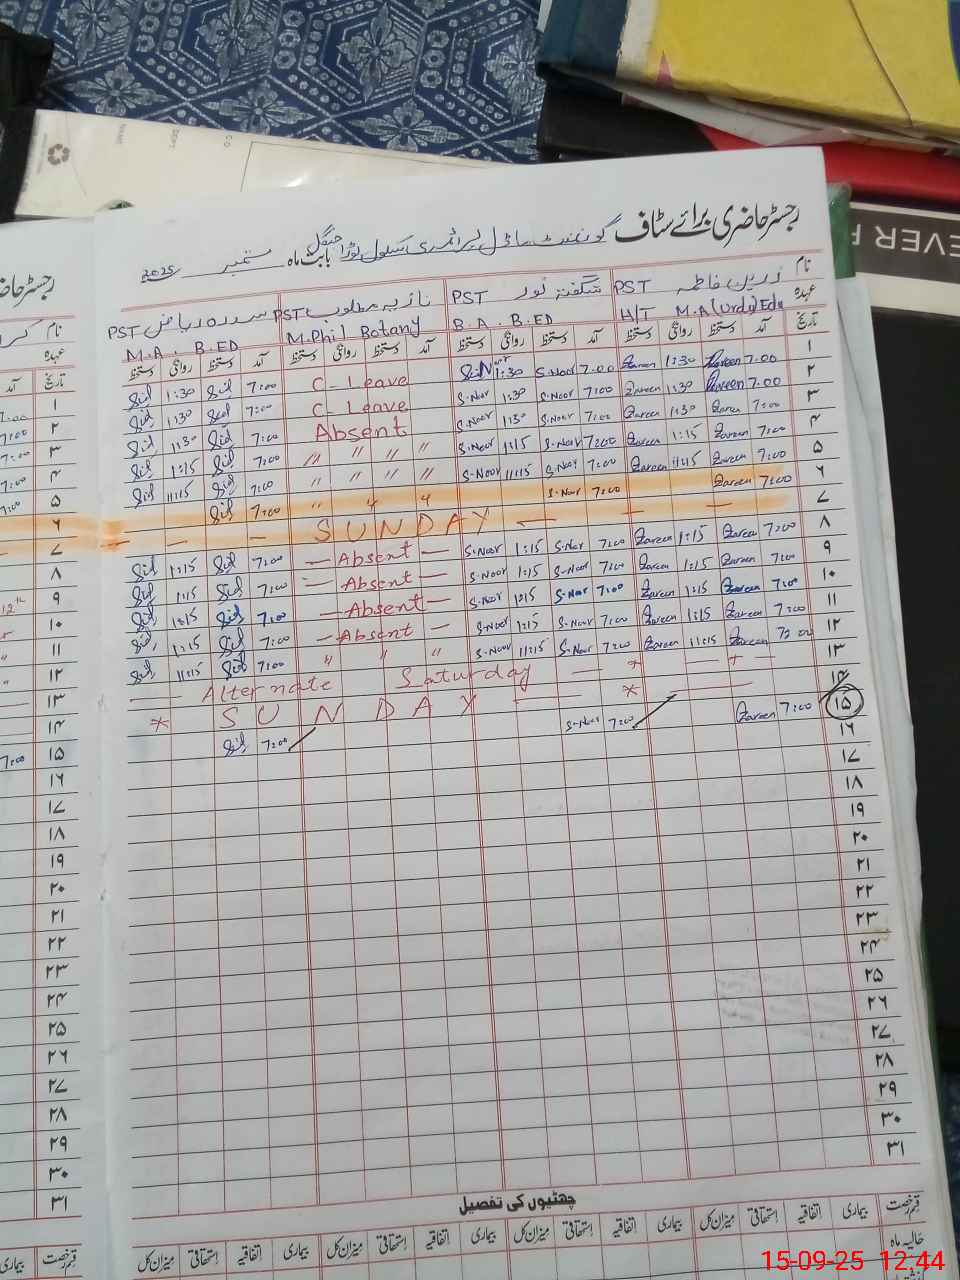 EVER F
رجسٹر حاضری برائے سٹاف
گورنمنٹ ماڈل پرائمری سکول بابت ماہ ستمبر 2025
نام زرین فاطمہ PST شگفتہ نور PST نازیہ مطلوب PST سدرہ ریاض PST
عہدہ H/T M.A (Urdu) Edu B.A. B.ED M.Phil Botany M.A. B.ED
تاریخ آمد دستخط روانگی دستخط آمد دستخط روانگی دستخط آمد دستخط روانگی دستخط آمد دستخط روانگی دستخط
۱ 7.00 Zareen 1:30 Zareen 7.00 S.Noor 1:30 S.Noor C-Leave 7:00 Sid 1:30 Sid
۲ 7.00 Zareen 1:30 Zareen 7:00 S.Noor 1:30 S.Noor C-Leave 7:00 Sid 1:30 Sid
۳ 7:00 Zareen 1:30 Zareen 7:00 S.Noor 1:30 S.Noor Absent 7:00 Sid 1:30 Sid
۴ 7:00 Zareen 1:15 Zareen 7:00 S.Noor 1:15 S.Noor " " " " 7:00 Sid 1:15 Sid
۵ 7:00 Zareen 11:15 Zareen 7:00 S.Noor 11:15 S.Noor " " " " 7:00 Sid 11:15 Sid
۶ 7:00 Zareen 7:00 S.Noor " " " 7:00 Sid
۷ — SUNDAY —
۸ 7:00 Zareen 1:15 Zareen 7:00 S.Noor 1:15 S.Noor — Absent — 7:00 Sid 1:15 Sid
۹ 7:00 Zareen 1:15 Zareen 7:00 S.Noor 1:15 S.Noor — Absent — 7:00 Sid 1:15 Sid
۱۰ 7:00 Zareen 1:15 Zareen 7:00 S.Noor 1:15 S.Noor — Absent — 7:00 Sid 1:15 Sid
۱۱ 7:00 Zareen 1:15 Zareen 7:00 S.Noor 1:15 S.Noor — Absent — 7:00 Sid 1:15 Sid
۱۲ 7:00 Zareen 11:15 Zareen 7:00 S.Noor 11:15 S.Noor " " " 7:00 Sid 11:15 Sid
۱۳ — Alternate Saturday — * — + —
۱۴ * SUNDAY — * —
۱۵ 7:00 Zareen 7:00 S.Noor 7:00 Sid
۱۶
۱۷
۱۸
۱۹
۲۰
۲۱
۲۲
۲۳
۲۴
۲۵
۲۶
۲۷
۲۸
۲۹
۳۰
۳۱
چھٹیوں کی تفصیل
قسم رخصت بیماری اتفاقیہ استحقاقی میزان کل بیماری اتفاقیہ استحقاقی میزان کل بیماری اتفاقیہ استحقاقی میزان کل بیماری اتفاقیہ استحقاقی میزان کل
حالیہ ماہ
نام
عہدہ
تاریخ آمد
۱ 7.00
۲ 7:00
۳ 7:00
۴ 7:00
۵ 7:00
۶
۷
۸
۹ 12th
۱۰
۱۱
۱۲
۱۳
۱۴
۱۵ 7:00
۱۶
۱۷
۱۸
۱۹
۲۰
۲۱
۲۲
۲۳
۲۴
۲۵
۲۶
۲۷
۲۸
۲۹
۳۰
۳۱
قسم رخصت بیماری
15-09-25 12:44